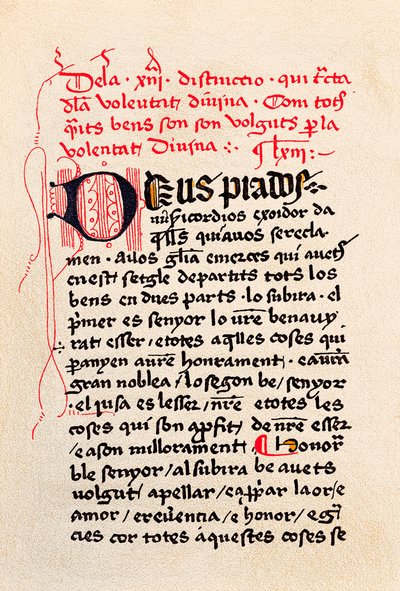 Dela · xiij · distinccio · qui tͬcta
d̄la voleutat diuina · Com tots
q̄its bens son son volguts p̱ la
volentat Diuina ·:· ¶ lxiij :~
DEUS piados :~
misicordios exoidor da
q̄lls qui auos serecla
men · A uos gl̄ia e merces qui auets
en est setgle departits tots los
bens en dues parts · lo subira · el
p̱mer es senyor lo ur̄e benauy
rat esser / e totes aq̄lles coses qui
p̱anyen a ur̄e honrament · e a ur̄a
gran noblea / lo segon be / senyor
· el jusa es lesser / nr̄e e totes les
coses qui son a p̱fit / de nr̄e esser
/ e a son millorament · ¶ honor̄
ble senyor / al subira be auets
volgut / apellar / e a p̱p̱ar laor / e
amor / e reuēencia / e honor / e gr̄
cies cor totes aquestes coses se